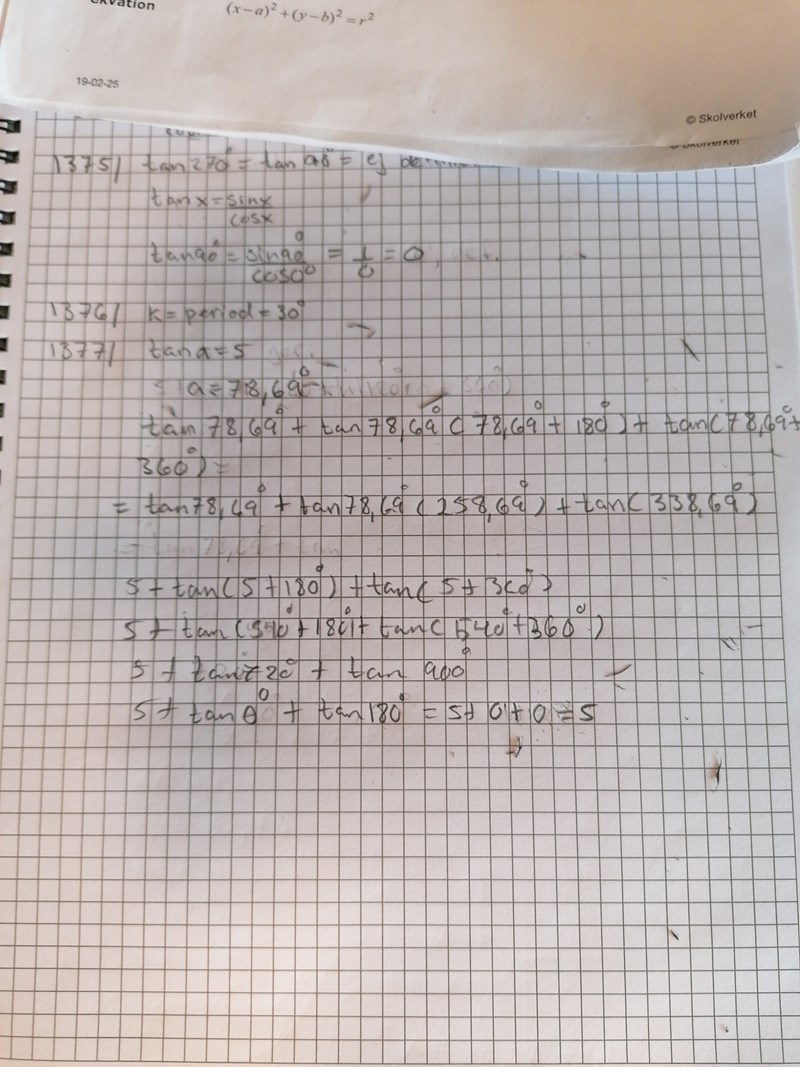 ekvation (x−a)² + (y−b)² = r²
19-02-25
© Skolverket
© Skolverket
1375/ tan270° = tan 90° = ej
tanx = sinx
cosx
tan90° = sin90° = 1 = 0
cos0° 0
1376/ k = period = 30°
1377/ tan a = 5
a = 78,69°
tan 78,69° + tan78,69° (78,69° + 180°) + tan(78,69+
360°) =
= tan78,69° + tan78,69° (258,69°) + tan(338,69°)
5 + tan(5+180°) + tan(5+360°)
5 + tan(540° + 180° + tan(540° + 360°)
5 + tan720° + tan 900°
5 + tan0° + tan180° = 5+ 0 + 0 = 5